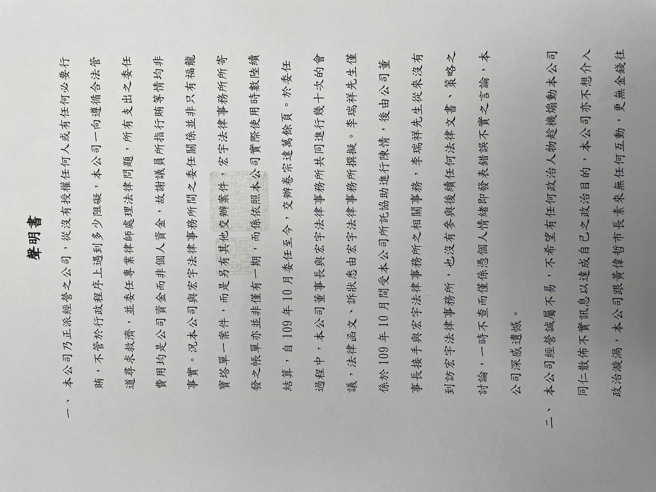 聲明書
一、本公司乃正派經營之公司，從沒有授權任何人或有任何必要行
賄，不管於行政程序上遇到多少阻礙，本公司一向遵循合法管
道尋求救濟，並委任專業律師處理法律問題，所有支出之委任
費用均是公司資金而非個人資金，故謝議員所指行賄等情均非
事實。況本公司與宏宇法律事務所間之委任關係並非只有福龍
寶塔單一案件，而是另有其他交辦案件，宏宇法律事務所所寄
發之帳單亦並非僅有一期，而係依照本公司實際使用時數陸續
結算，自109年10月委任至今，交辦卷宗達萬餘頁。於委任
過程中，本公司董事長與宏宇法律事務所共同進行幾十次的會
議，法律函文、訴狀悉由宏宇法律事務所撰擬。李瑞祥先生僅
係於109年10月間受本公司所託協助進行陳情，後由公司董
事長接手與宏宇法律事務所之相關事務，李瑞祥先生從來沒有
到訪宏宇法律事務所，也沒有參與後續任何法律文書、策略之
討論，一時不查而僅係憑個人情緒即發表錯誤不實之言論，本
公司深感遺憾。
二、本公司經營誠屬不易，不希望有任何政治人物趁機煽動本公司
同仁散佈不實訊息以達成自己之政治目的，本公司亦不想介入
政治漩渦，本公司跟黃偉哲市長素來無任何互動，更無金錢往